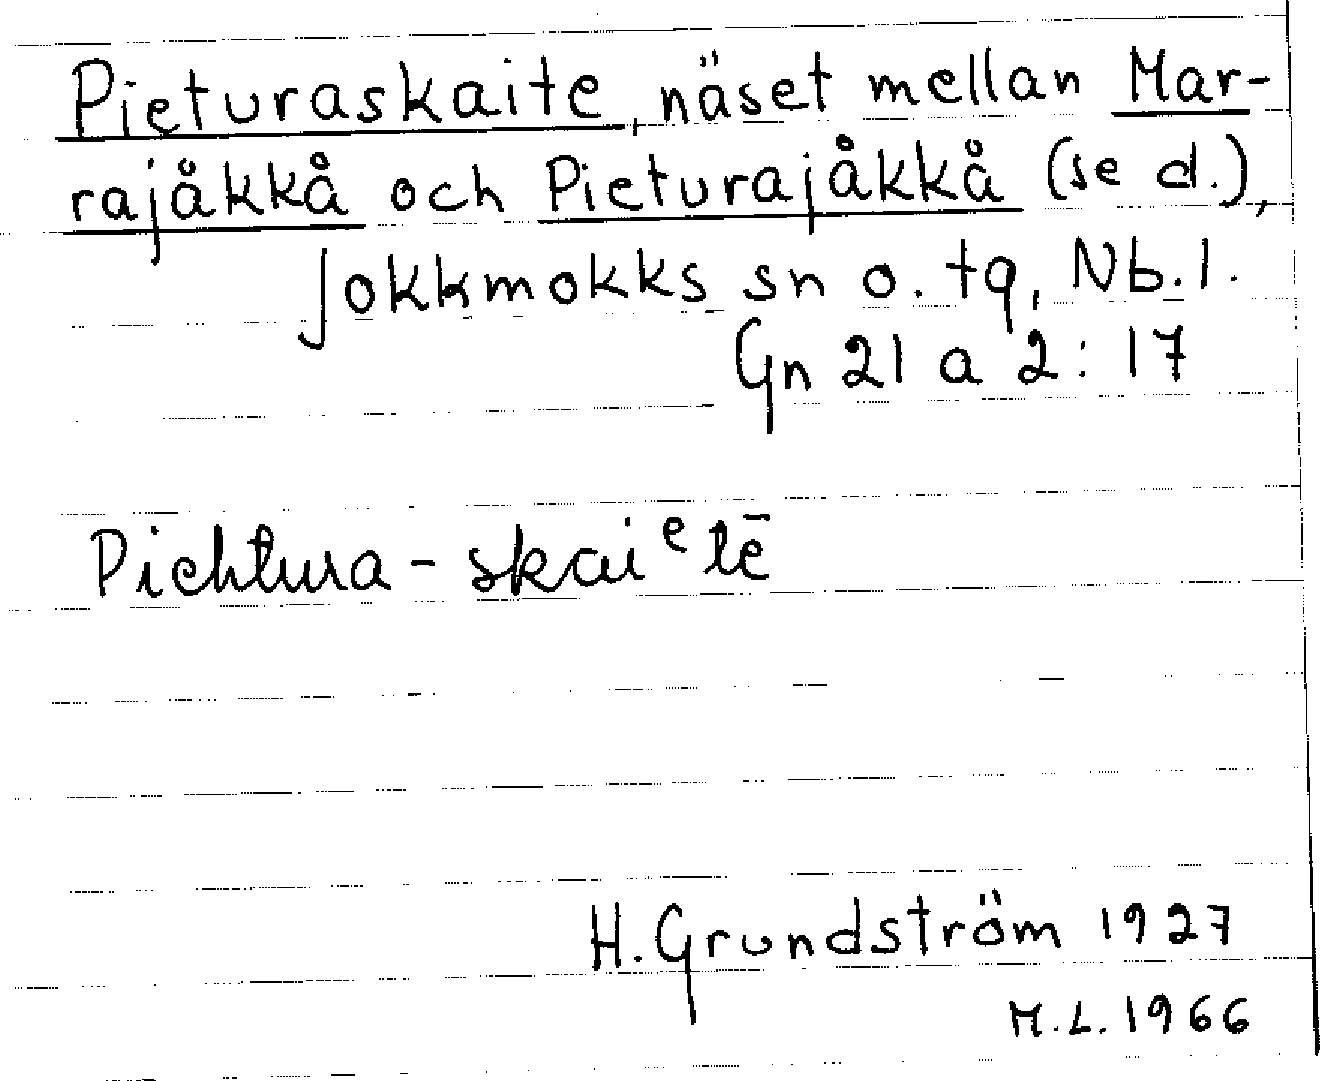 Pieturaskaite, näset mellan Mar-
rajåkkå och Pieturajåkkå (se d.),
Jokkmokks sn o. tg, Nb. l.
Gn 21 a 2: 17
Piehtura-skaiᵉtē
H. Grundström 1927
M.L. 1966